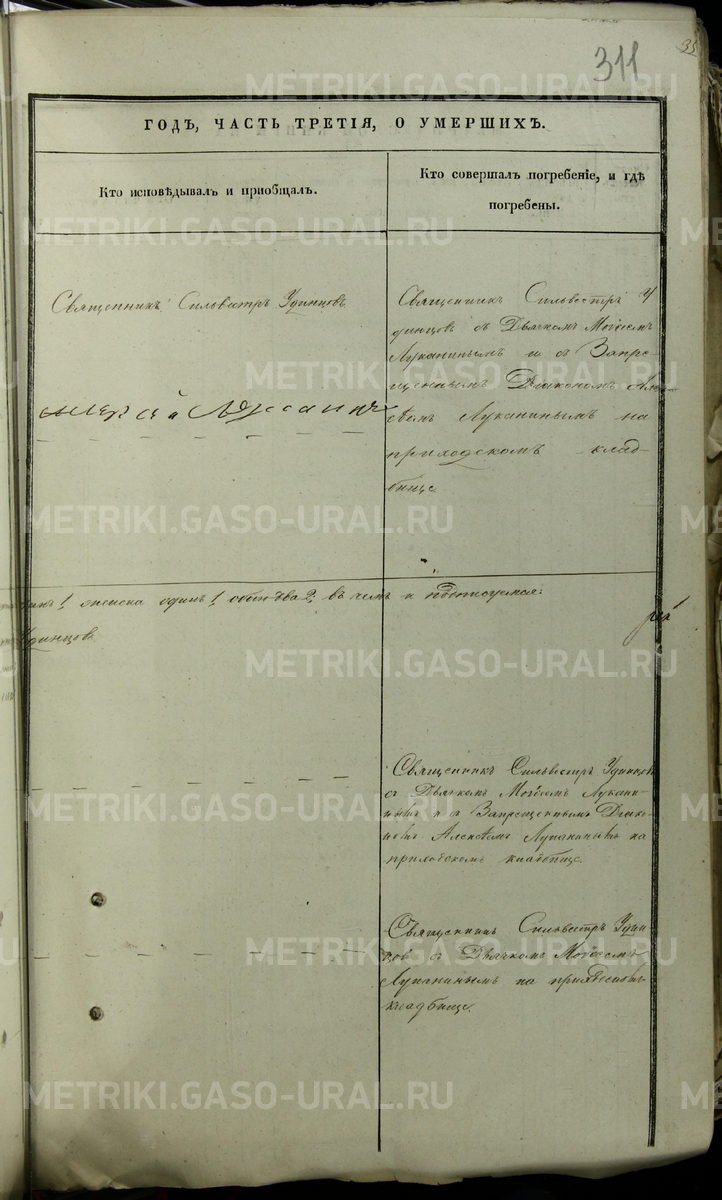 35
311
ГОДЪ, ЧАСТЬ ТРЕТІЯ, О УМЕРШИХЪ.
Кто исповѣдывалъ и пріобщалъ.
Кто совершалъ погребеніе, и гдѣ
погребены.
Священникъ Сильвестръ Удинцовъ
Священникъ Сильвестръ У
динцовъ съ Дьячкомъ Мойсеемъ
Луканинымъ и съ Запре-
щеннымъ Діакономъ Алек-
сѣемъ Луканинымъ на
приходскомъ клад-
бище
1, женска одинъ 1, обоего два 2, въ чемъ и подписуемся:
Удинцовъ
Священникъ Сильвестръ Удинцовъ
съ Дьячкомъ Мойсеемъ Лукани-
нымъ и съ Запрещеннымъ Діако-
номъ Алексѣемъ Луканинымъ на
приходскомъ кладбище.
Священникъ Сильвестръ Удин-
цовъ съ Дьячкомъ Мойсеемъ
Луканинымъ на приходскомъ
кладбище.
METRIKI.GASO-URAL.RU